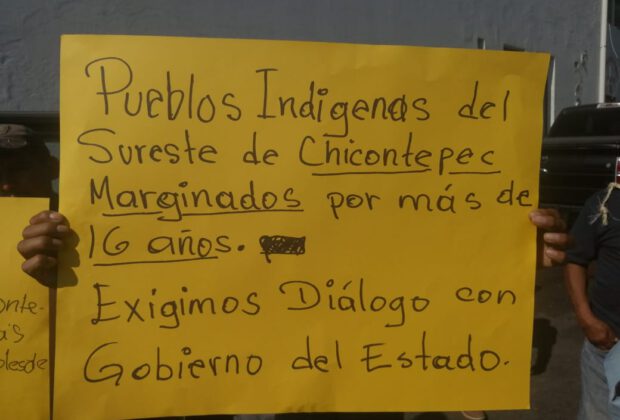 Pueblos Indigenas del
Sureste de Chicontepec
Marginados por más de
16 años.
Exigimos Diálogo con
Gobierno del Estado.
onte-